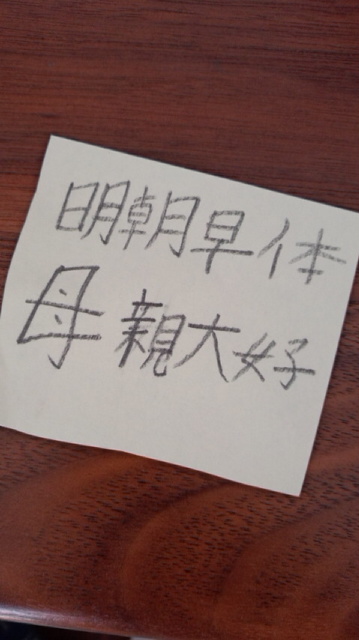 明朝早体
母親大好